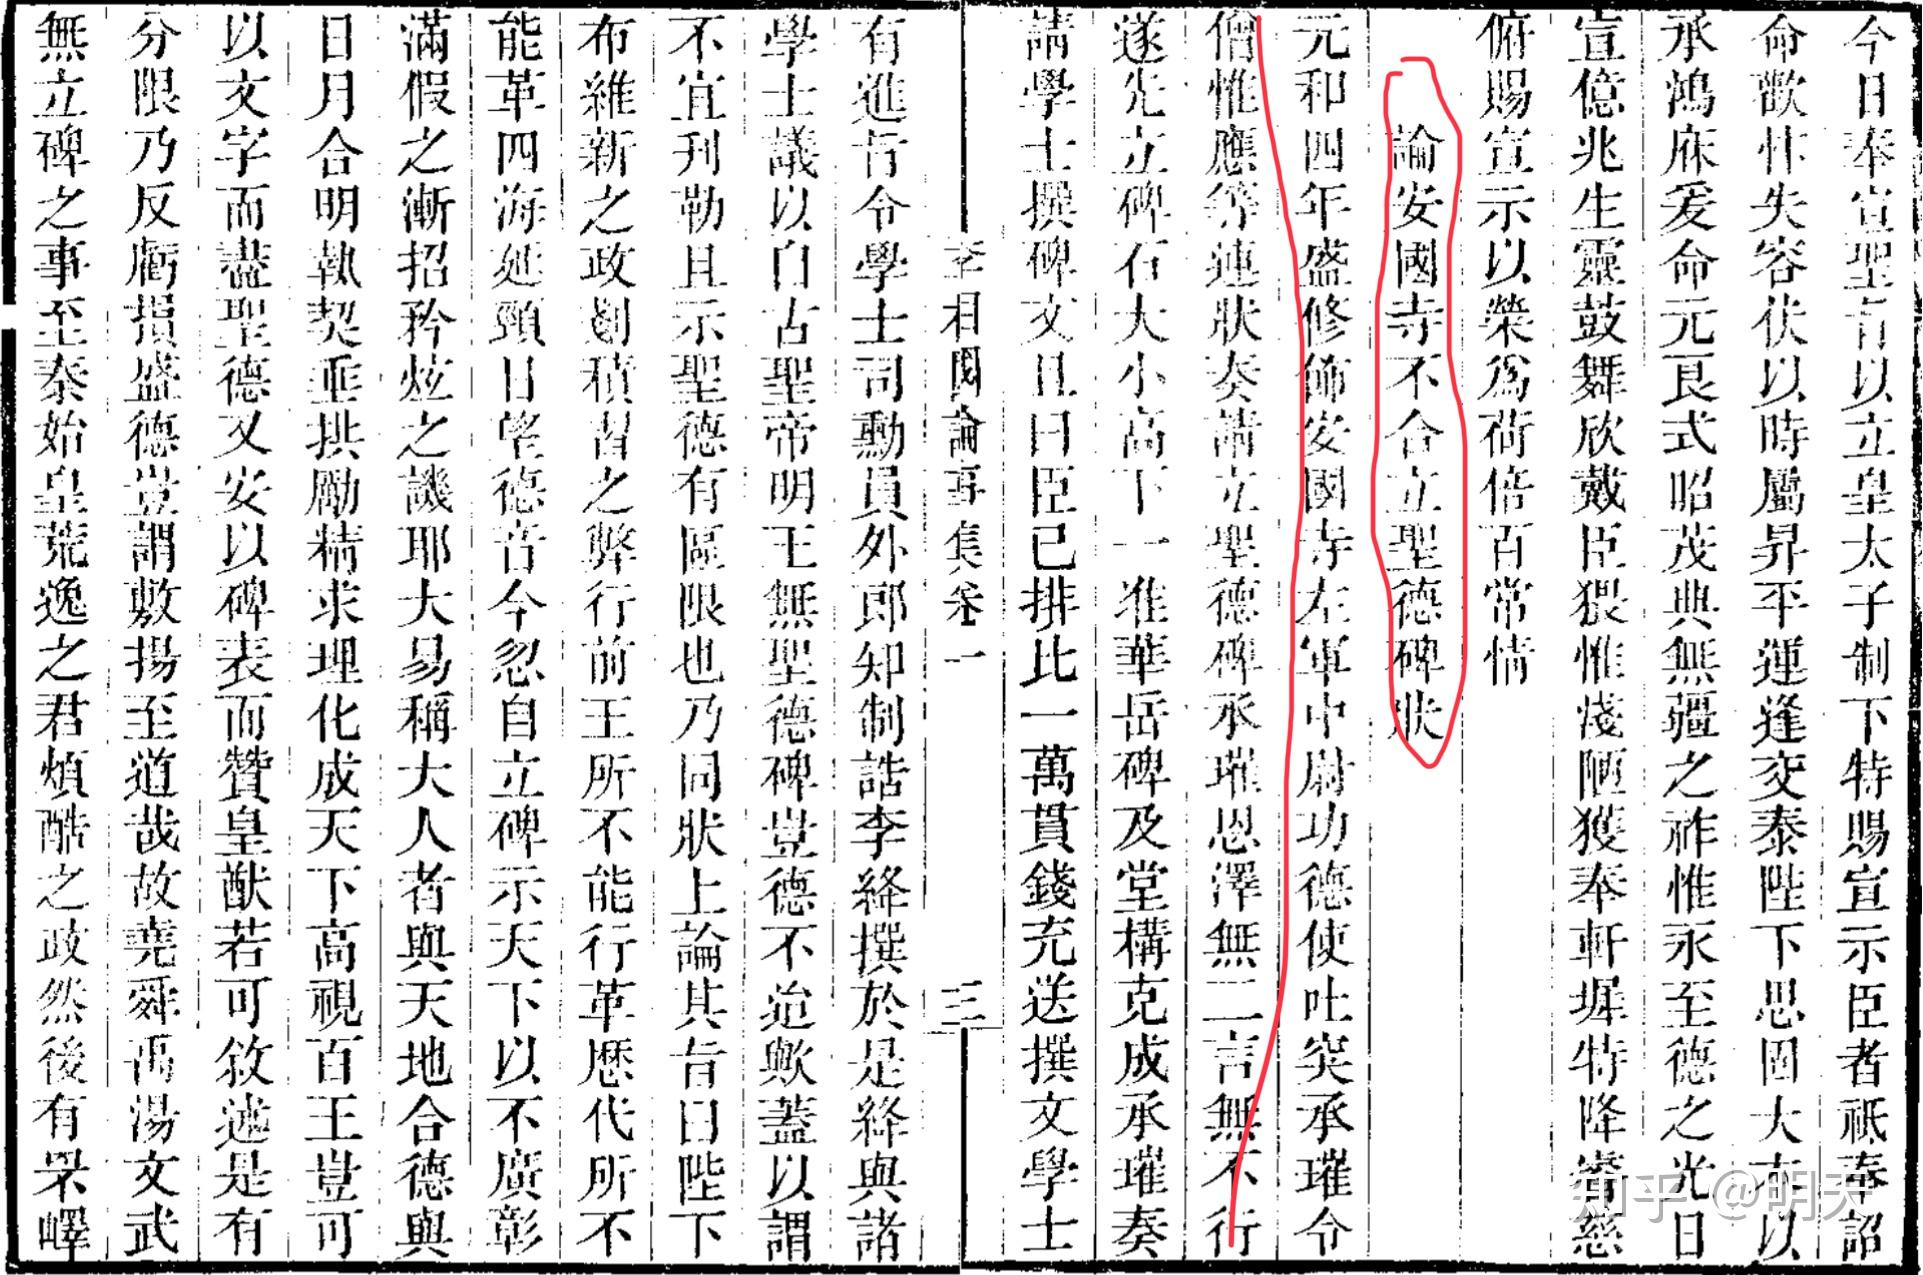 今日奉宣聖旨以立皇太子制下特賜宣示臣者祇奉詔
命歡忭失容伏以時屬昇平運逢交泰陛下思固大本以
承鴻庥爰命元良式昭茂典無疆之祚惟永至德之光日
宣億兆生靈鼓舞欣戴臣猥惟淺陋獲奉軒墀特降睿慈
俯賜宣示以榮爲荷倍百常情
論安國寺不合立聖德碑狀
元和四年盛修飾安國寺左軍中尉功德使吐突承璀令
僧惟應等連狀奏請立聖德碑承璀恩澤無二言無不行
遂先立碑石大小高下一准華岳碑及堂構克成承璀奏
請學士撰碑文且曰臣已排比一萬貫錢充送撰文學士
李相國論事集卷一
三
有進旨令學士司勳員外郎知制誥李絳撰於是絳與諸
學士議以自古聖帝明王無聖德碑豈德不逮歟蓋以謂
不宜刊勒且示聖德有區限也乃同狀上論其旨曰陛下
布維新之政剗積習之弊行前王所不能行革歷代所不
能革四海延頸日望德音今忽自立碑示天下以不廣彰
滿假之漸招矜炫之譏耶大易稱大人者與天地合德與
日月合明執契垂拱勵精求理化成天下高視百王豈可
以文字而盡聖德又安以碑表而贊皇猷若可敘述是有
分限乃反虧損盛德豈謂敷揚至道哉故堯舜禹湯文武
無立碑之事至秦始皇荒逸之君煩酷之政然後有罘嶧
知乎 @明天